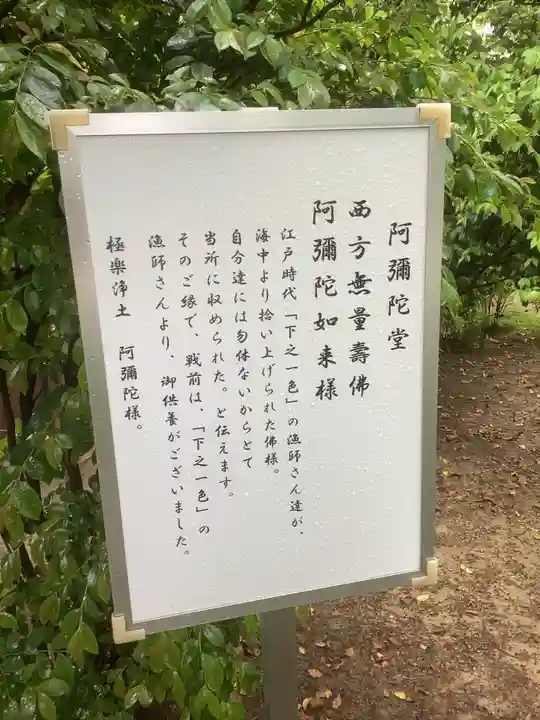 阿彌陀堂
西方無量壽佛
阿彌陀如来様
江戸時代「下之一色」の漁師さん達が、
海中より拾い上げられた佛様。
自分達には勿体ないからとて
当所に収められた。と伝えます。
そのご縁で、戦前は、「下之一色」の
漁師さんより、御供養がございました。
極楽浄土 阿彌陀様。